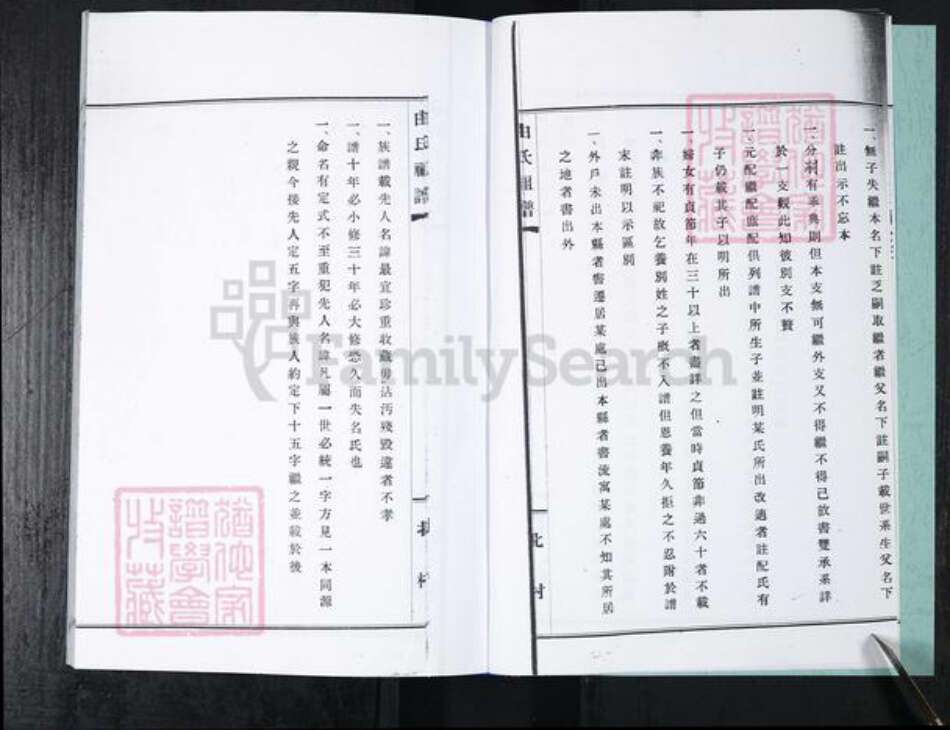 一、無子失繼本名下註乏嗣取繼者繼父名下註嗣子載世系生父名下
註出示不忘本
一、分村有承典則但本支無可繼外支又不得繼不得已故書雙承系詳
於一支觀此知彼別支不贅
一、元配繼配庶配俱列譜中所生子並註明某氏所出改適者註配氏有
子仍載其子以明所出
一、婦女有貞節年在三十以上者盡詳之但當時貞節非過六十者不載
一、非族不祀故乞養別姓之子概不入譜但恩養年久拒之不忍附於譜
末註明以示區別
一、外戶未出本縣者書遷居某處已出本縣者書流寓某處不知其所居
之地者書出外
由氏祖譜
北村
由氏祖譜
北村
一、族譜載先人名諱最宜珍重收藏毋沾汚殘毀違者不孝
一、譜十年必小修三十年必大修恐久而失名氏也
一、命名有定式不至重犯先人名諱凡屬一世必統一字方見一本同源
之親今接先人定五字再與族人約定下十五字繼之並載於後
FamilySearch
譜學會
收藏
譜學會
收藏